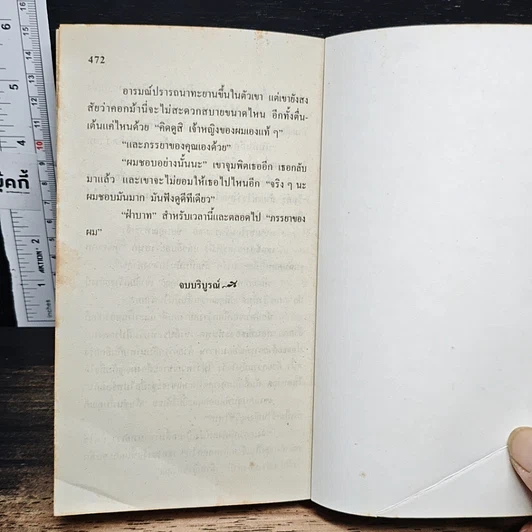 472
อารมณ์ปรารถนาทะยานขึ้นในตัวเขา แต่เขายังสง
สัยว่าคอกม้านี่จะไม่สะดวกสบายขนาดไหน อีกทั้งตื่น-
เต้นแค่ไหนด้วย “คิดดูสิ เจ้าหญิงของผมเองแท้ ๆ”
“และภรรยาของคุณเองด้วย”
“ผมชอบอย่างนั้นนะ” เขาจุมพิตเธออีก เธอกลับ
มาแล้ว และเขาจะไม่ยอมให้เธอไปไหนอีก “จริง ๆ นะ
ผมชอบมันมาก มันฟังดูดีทีเดียว”
“ฝ่าบาท” สำหรับเวลานี้และตลอดไป “ภรรยาของ
ผม”
จบบริบูรณ์